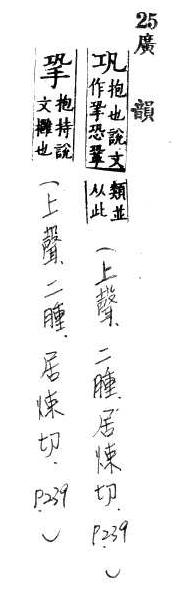 25廣韻
巩 抱也說文
作𢀜恐鞏
類並
从此
(上聲.二腫.居悚切.P.239)
㧬 抱持說
文攤也
(上聲.二腫.居悚切.P.239)